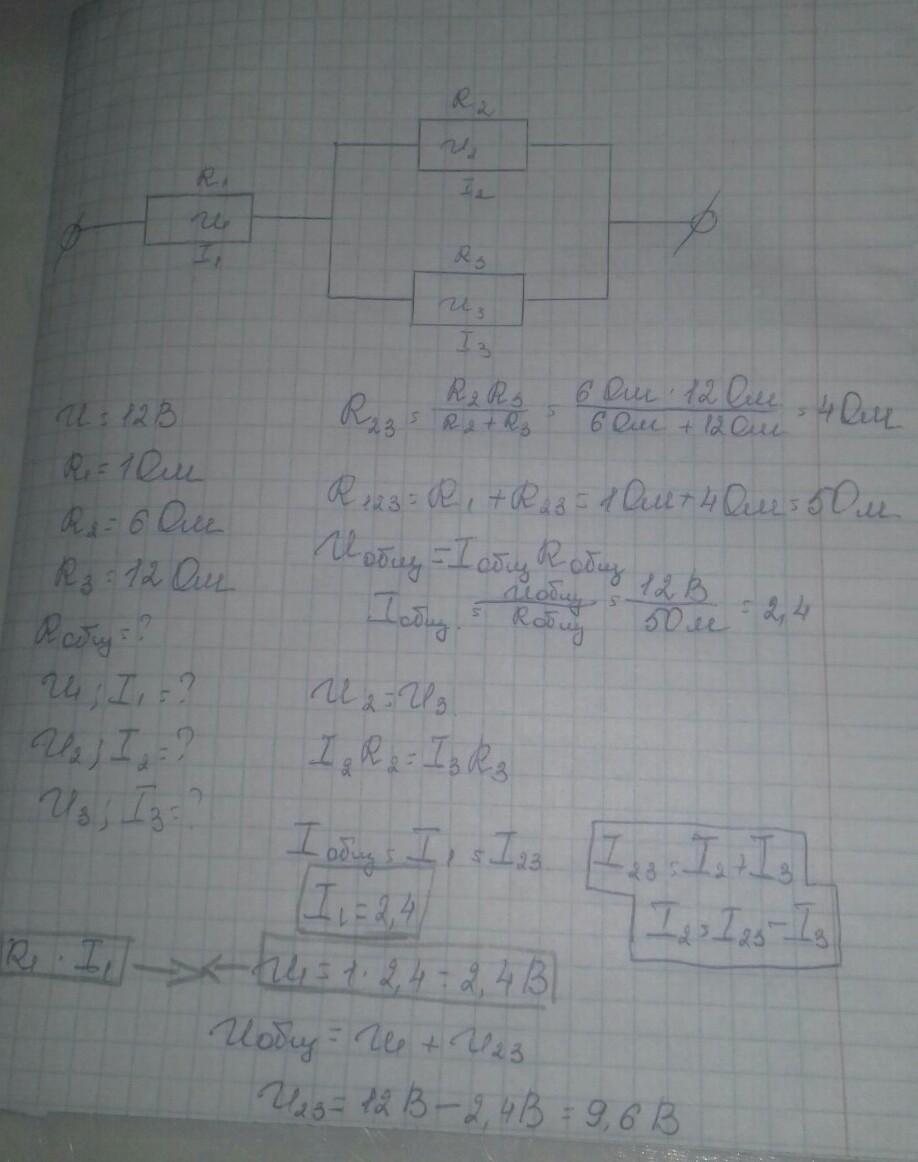 R₂
U₂
I₂
R₁
U₁
I₁
R₃
U₃
I₃
U = 12В
R₁ = 1Ом
R₂ = 6Ом
R₃ = 12Ом
Rобщ = ?
U₁; I₁ = ?
U₂; I₂ = ?
U₃; I₃ = ?
R₂₃ = R₂R₃ / R₂+R₃ = 6Ом · 12Ом / 6Ом + 12Ом = 4Ом
R₁₂₃ = R₁ + R₂₃ = 1Ом + 4Ом = 5Ом
Uобщ = Iобщ Rобщ
Iобщ. = Uобщ / Rобщ = 12В / 5Ом = 2,4
U₂ = U₃
I₂R₂ = I₃R₃
Iобщ = I₁ = I₂₃
I₁ = 2,4
I₂₃ = I₂ + I₃
I₂ = I₂₃ − I₃
R₁ · I₁
U₁ = 1 · 2,4 = 2,4В
Uобщ = U₁ + U₂₃
U₂₃ = 12В − 2,4В = 9,6В